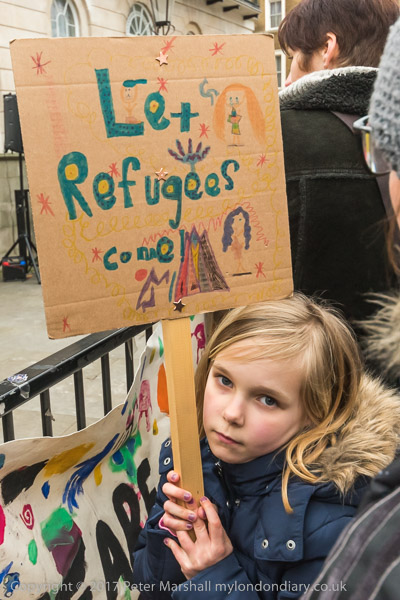 Let
Refugees
come!
ARE
s Copyright © 2017 Peter Marshall mylondondiary.co.uk